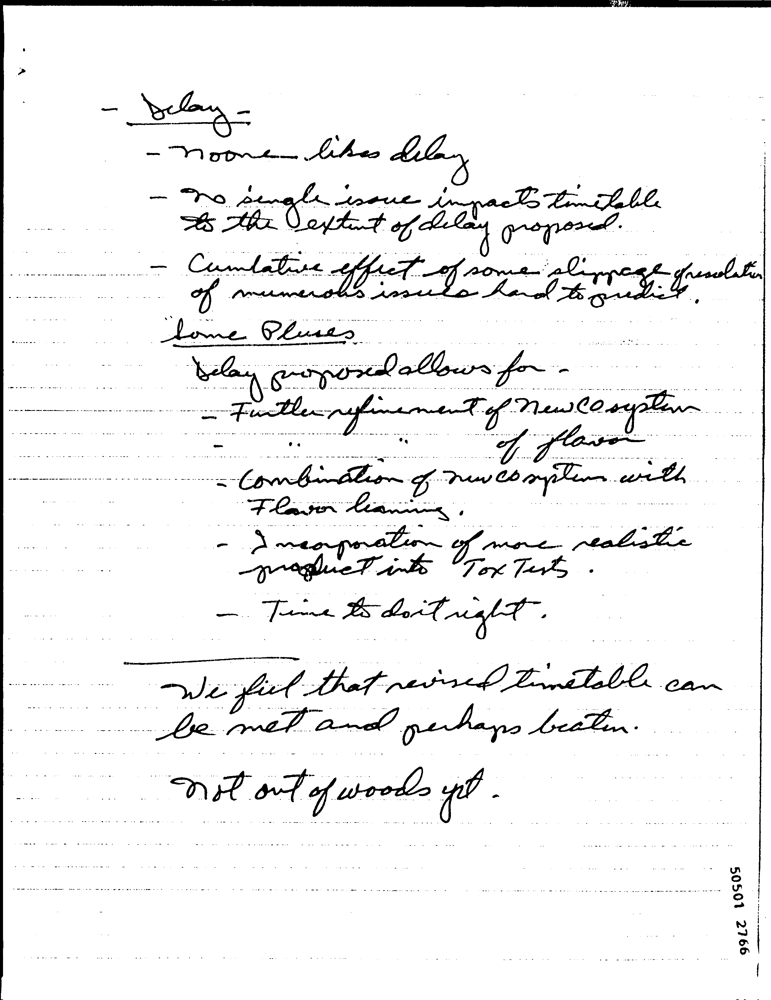 - Delay -
- Noone likes delay
- No single issue impacts timetable
to the extent of delay proposed.
- Cumlative effect of some slippage & resolution
of numerous issues hard to predict.
Some Pluses
Delay proposed allows for -
- Further refinement of Newco system
- " " of flavor
- Combination of newco systems with
Flavor leaning.
- Incorporation of more realistic
product into Tox Tests.
- Time to do it right.
We feel that revised timetable can
be met and perhaps beaten.
Not out of woods yet.
50501 2766